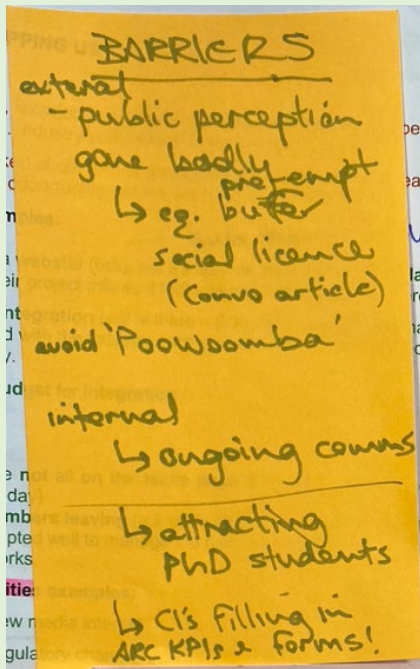 BARRIERS
external
- public perception
gone badly
preempt
↳ eg. buffer
social licence
(convo article)
avoid 'Poowoomba'
internal
↳ ongoing comms
↳ attracting
PhD students
↳ CI's filling in
ARC KPIs & forms!